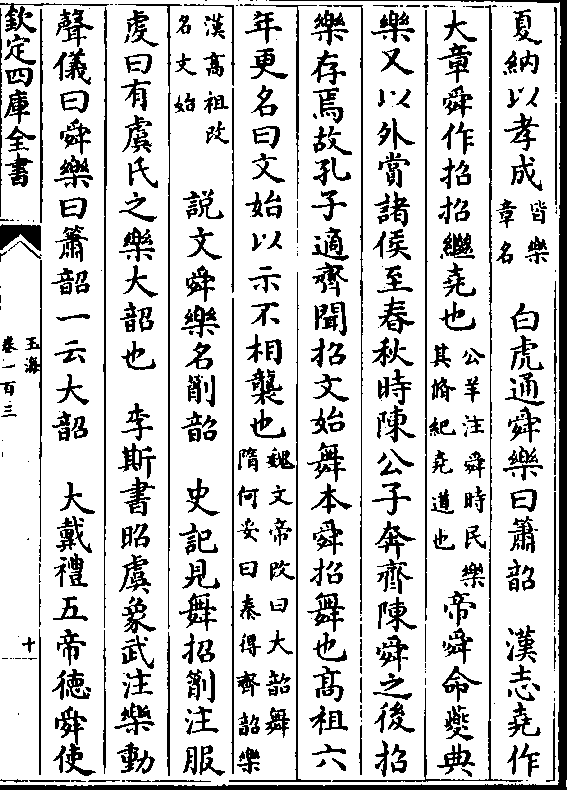 夏納以孝成皆樂章名　白虎通舜樂曰簫韶　漢志堯作
大章舜作招招繼堯也公羊注舜時民樂其脩紀堯道也帝舜命夔典
樂又以外賞諸侯至春秋時陳公子奔齊陳舜之後招
樂存焉故孔子適齊聞招文始舞本舜招舞也高祖六
年更名曰文始以示不相襲也魏文帝改曰大韶舞隋何妥曰秦得齊韶樂
漢高祖改名文始　說文舜樂名削韶　史記見舞招箾注服
虔曰有虞氏之樂大韶也　李斯書昭虞象武注樂動
聲儀曰舜樂曰簫韶一云大韶　大戴禮五帝德舜使
欽定四庫全書
玉海
卷一百三
十